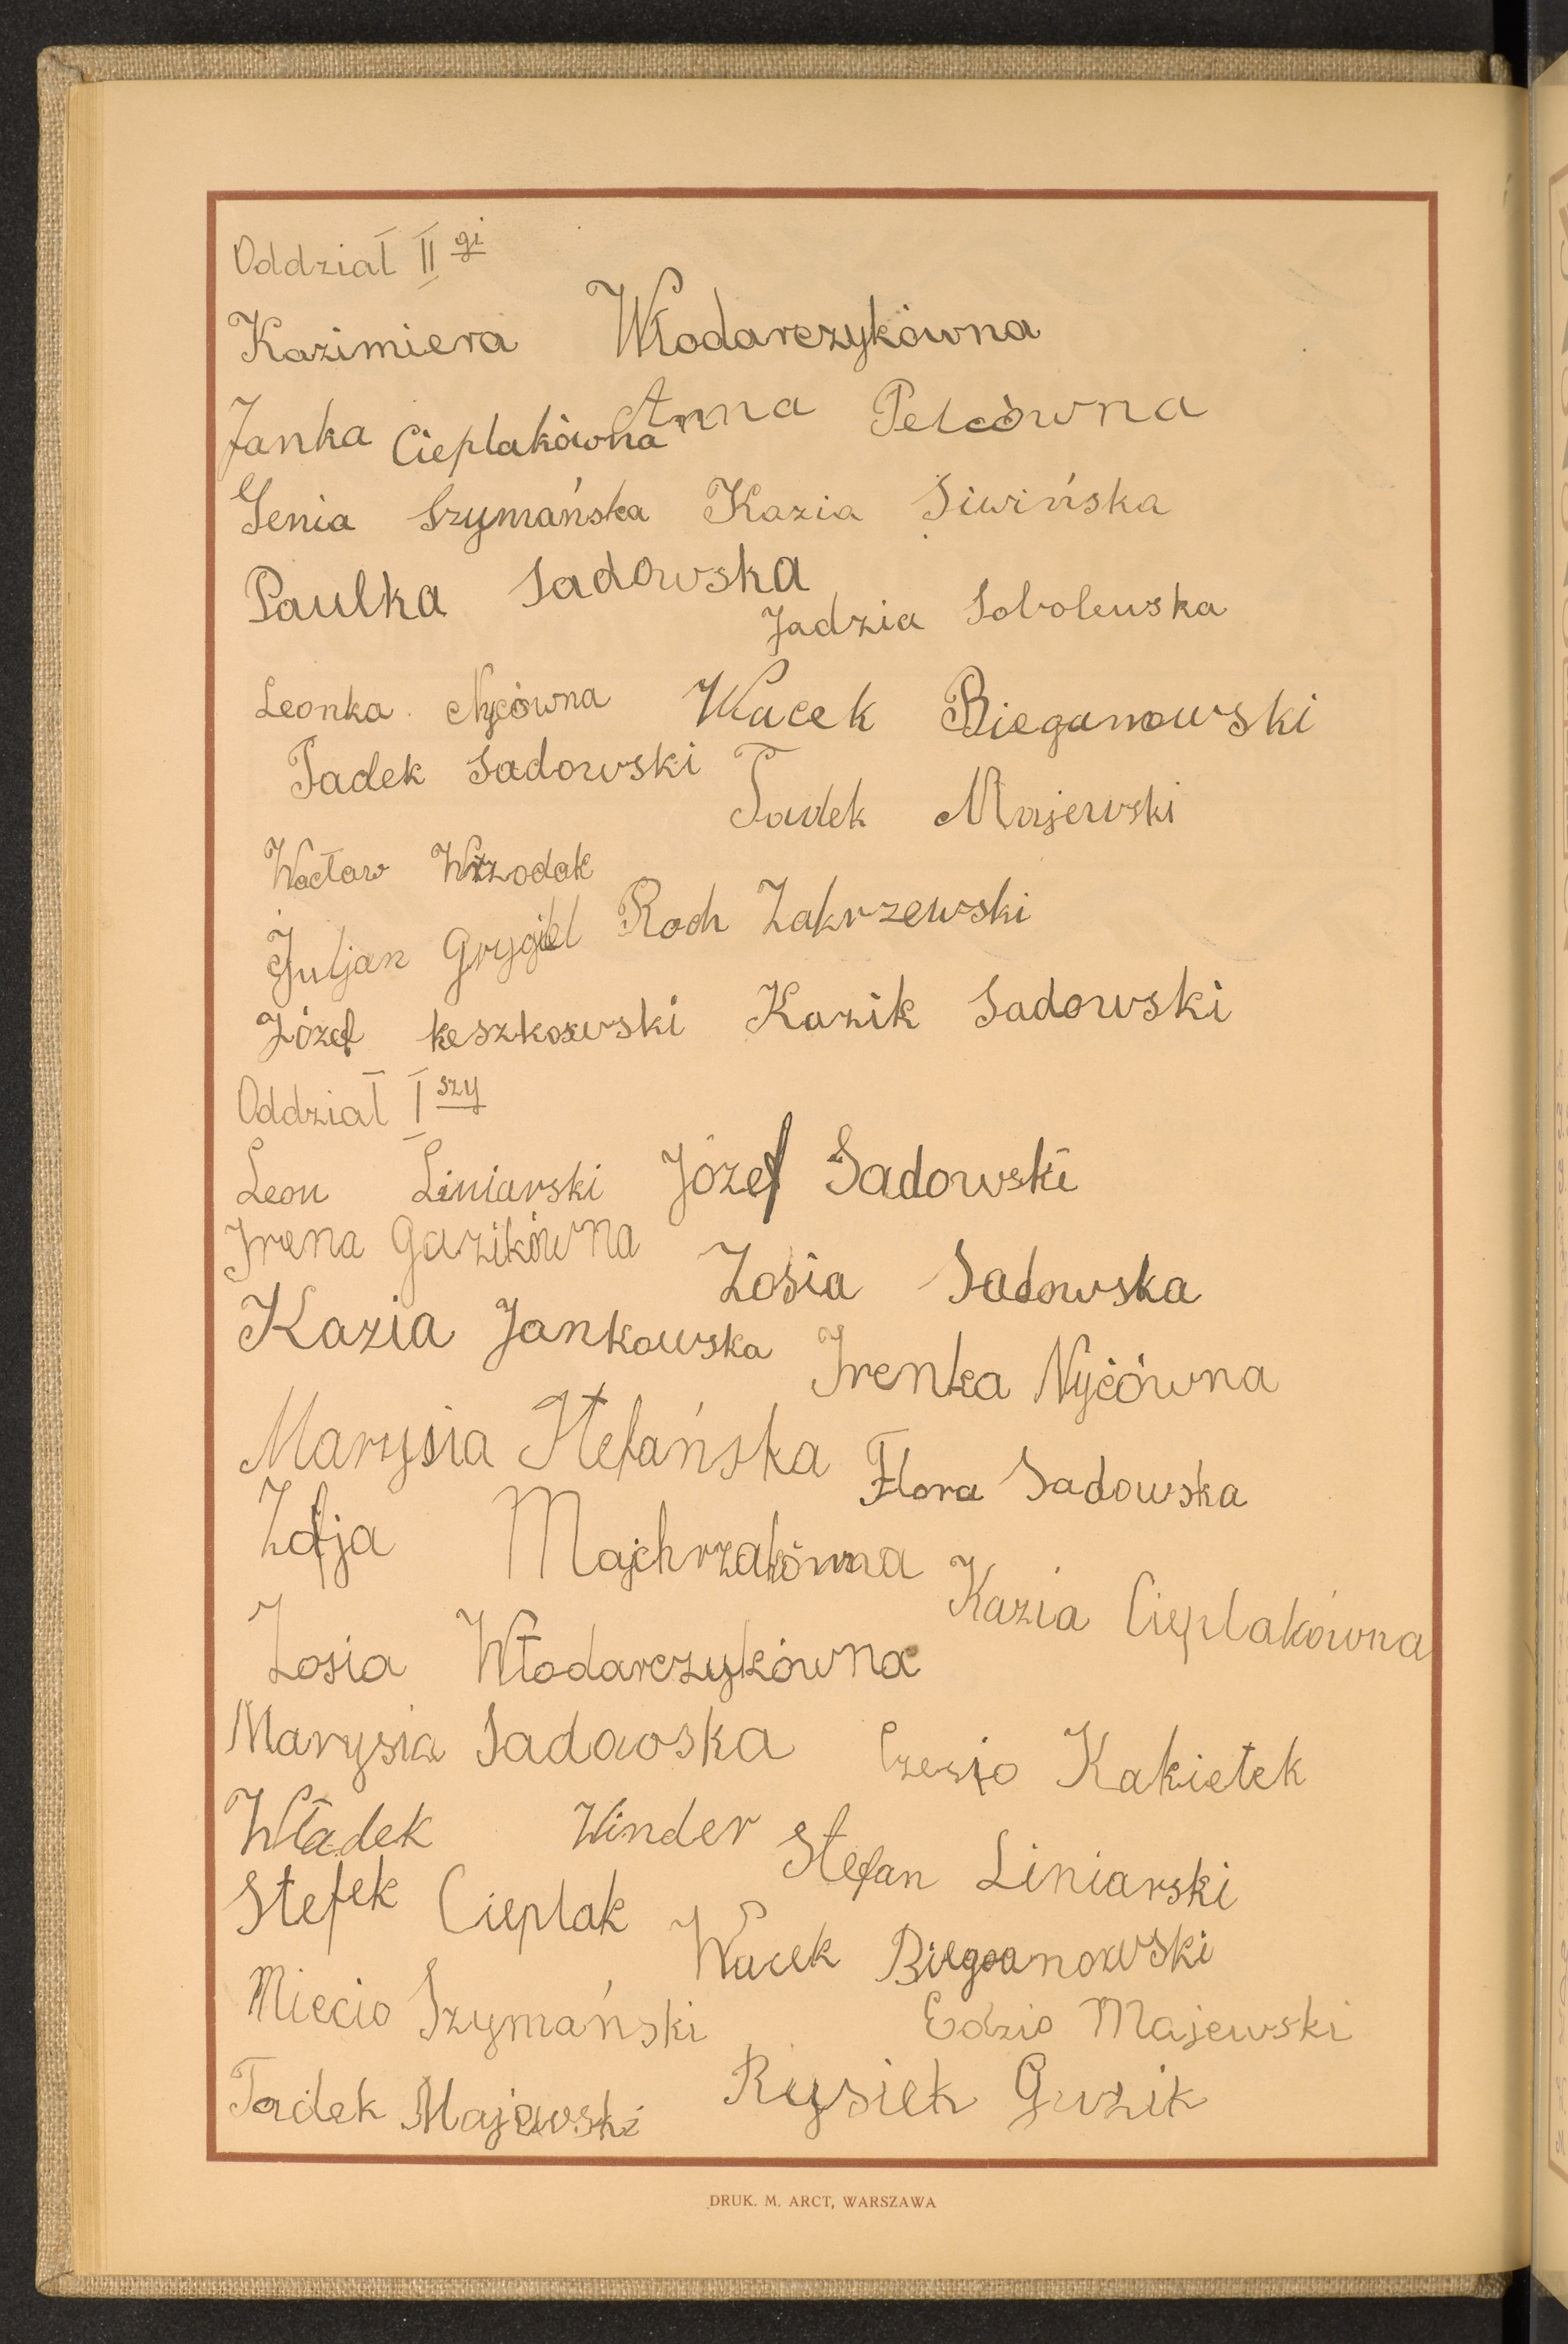 Oddział II gi
Kazimiera Włodarczykówna
Janka Cieplakówna Anna Pelcówna
Genia Szymańska Kazia Siwińska
Paulka Sadowska
Jadzia Sobolewska
Leonka Nycówna Wacek Bieganowski
Tadek Sadowski Tadek Majewski
Wacław Wrzodak
Juljan Grygiel Roch Zakrzewski
Józef keszkowski Kazik Sadowski
Oddział I szy
Leon Liniarski Józef Sadowski
Irena Gazikówna Zosia Sadowska
Kazia Jankowska Irenka Nyćówna
Marysia Stefańska Flora Sadowska
Zofja Majchrzakówna
Kazia Cieplakówna
Zosia Włodarczykówna
Marysia Sadowska Czesio Kakietek
Władek Winder Stefan Liniarski
Stefek Cieplak Wacek Biegoanowski
Miecio Szymański Edzio Majewski
Tadek Majewski Rysiek Guzik
DRUK. M. ARCT, WARSZAWA